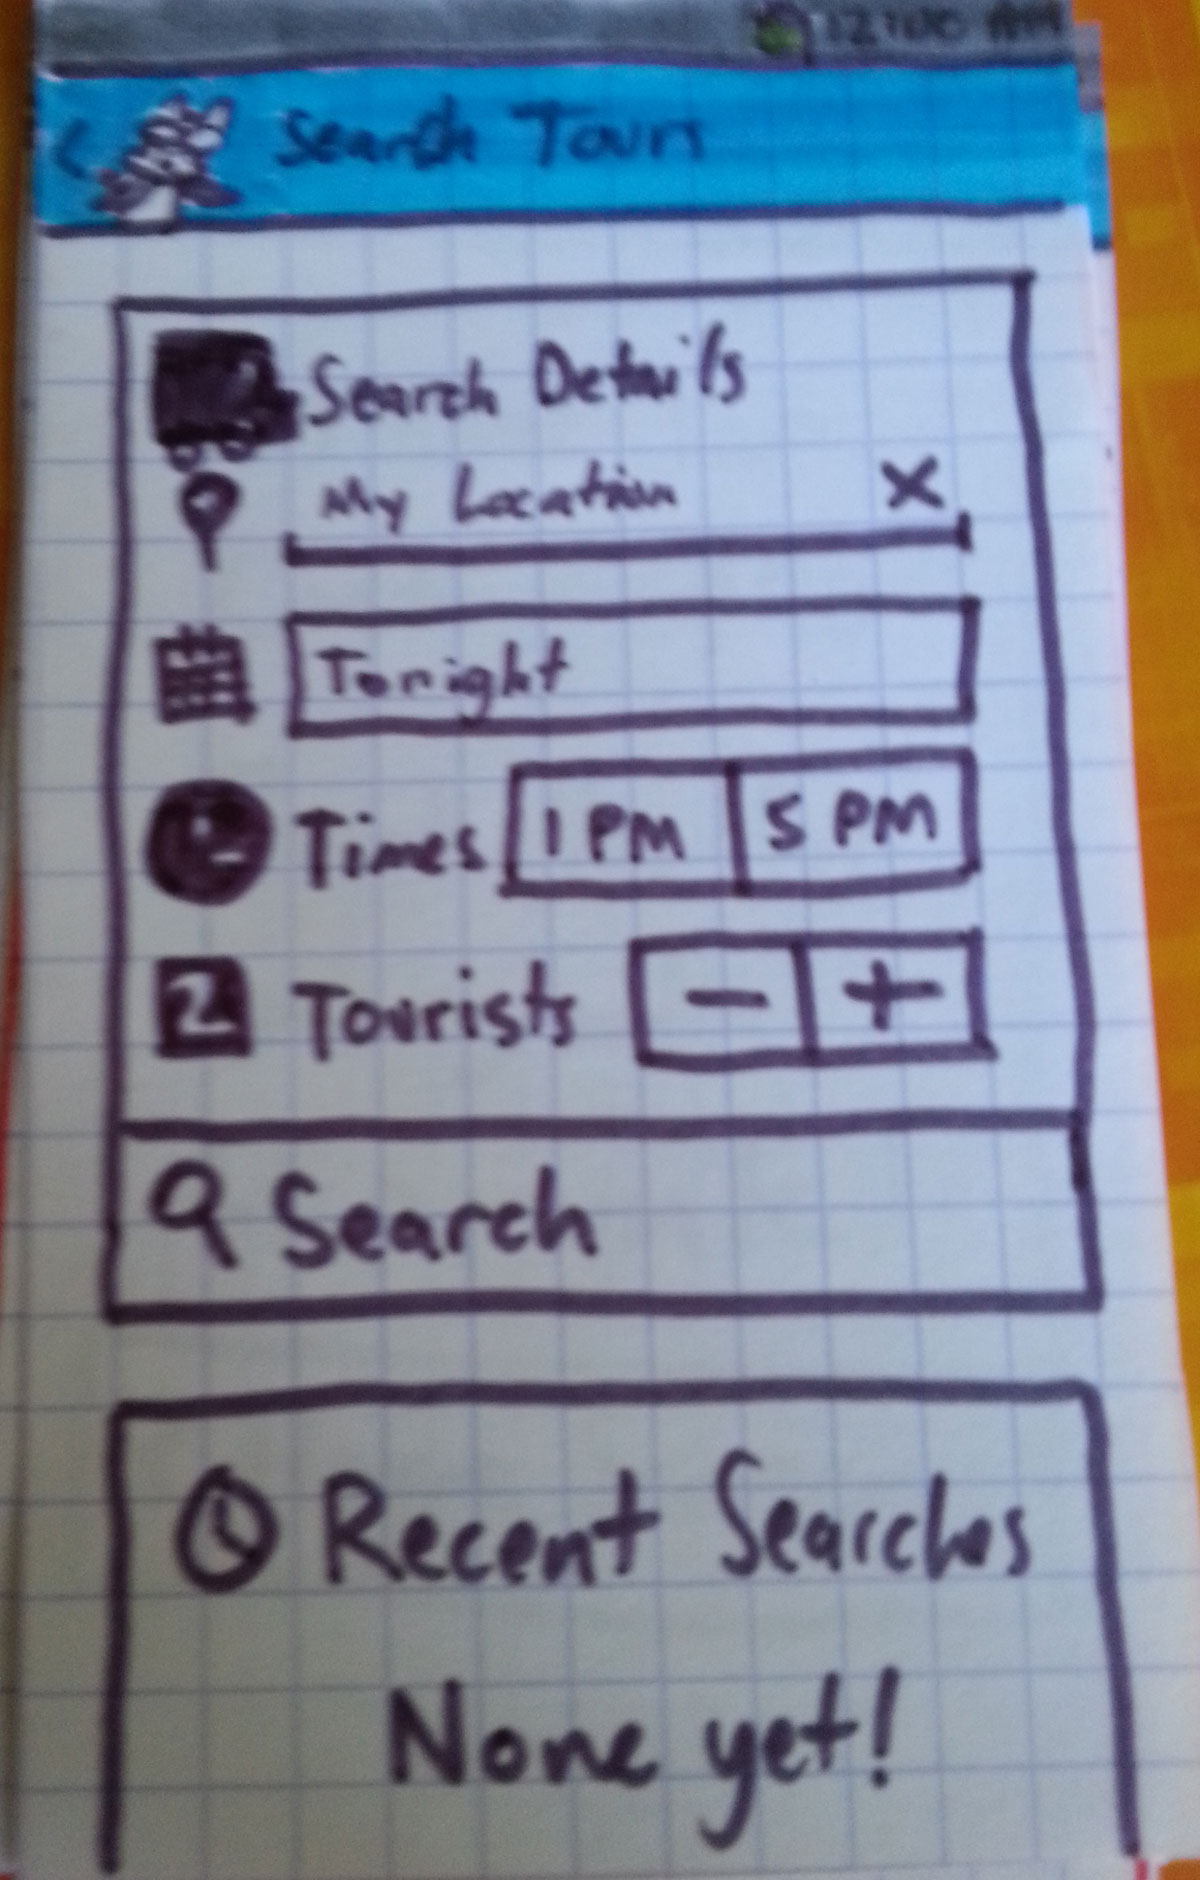 12:00 AM
Search Tours
Search Details
My Location X
Tonight
Times 1 PM 5 PM
2 Tourists - +
Search
Recent Searches
None yet!